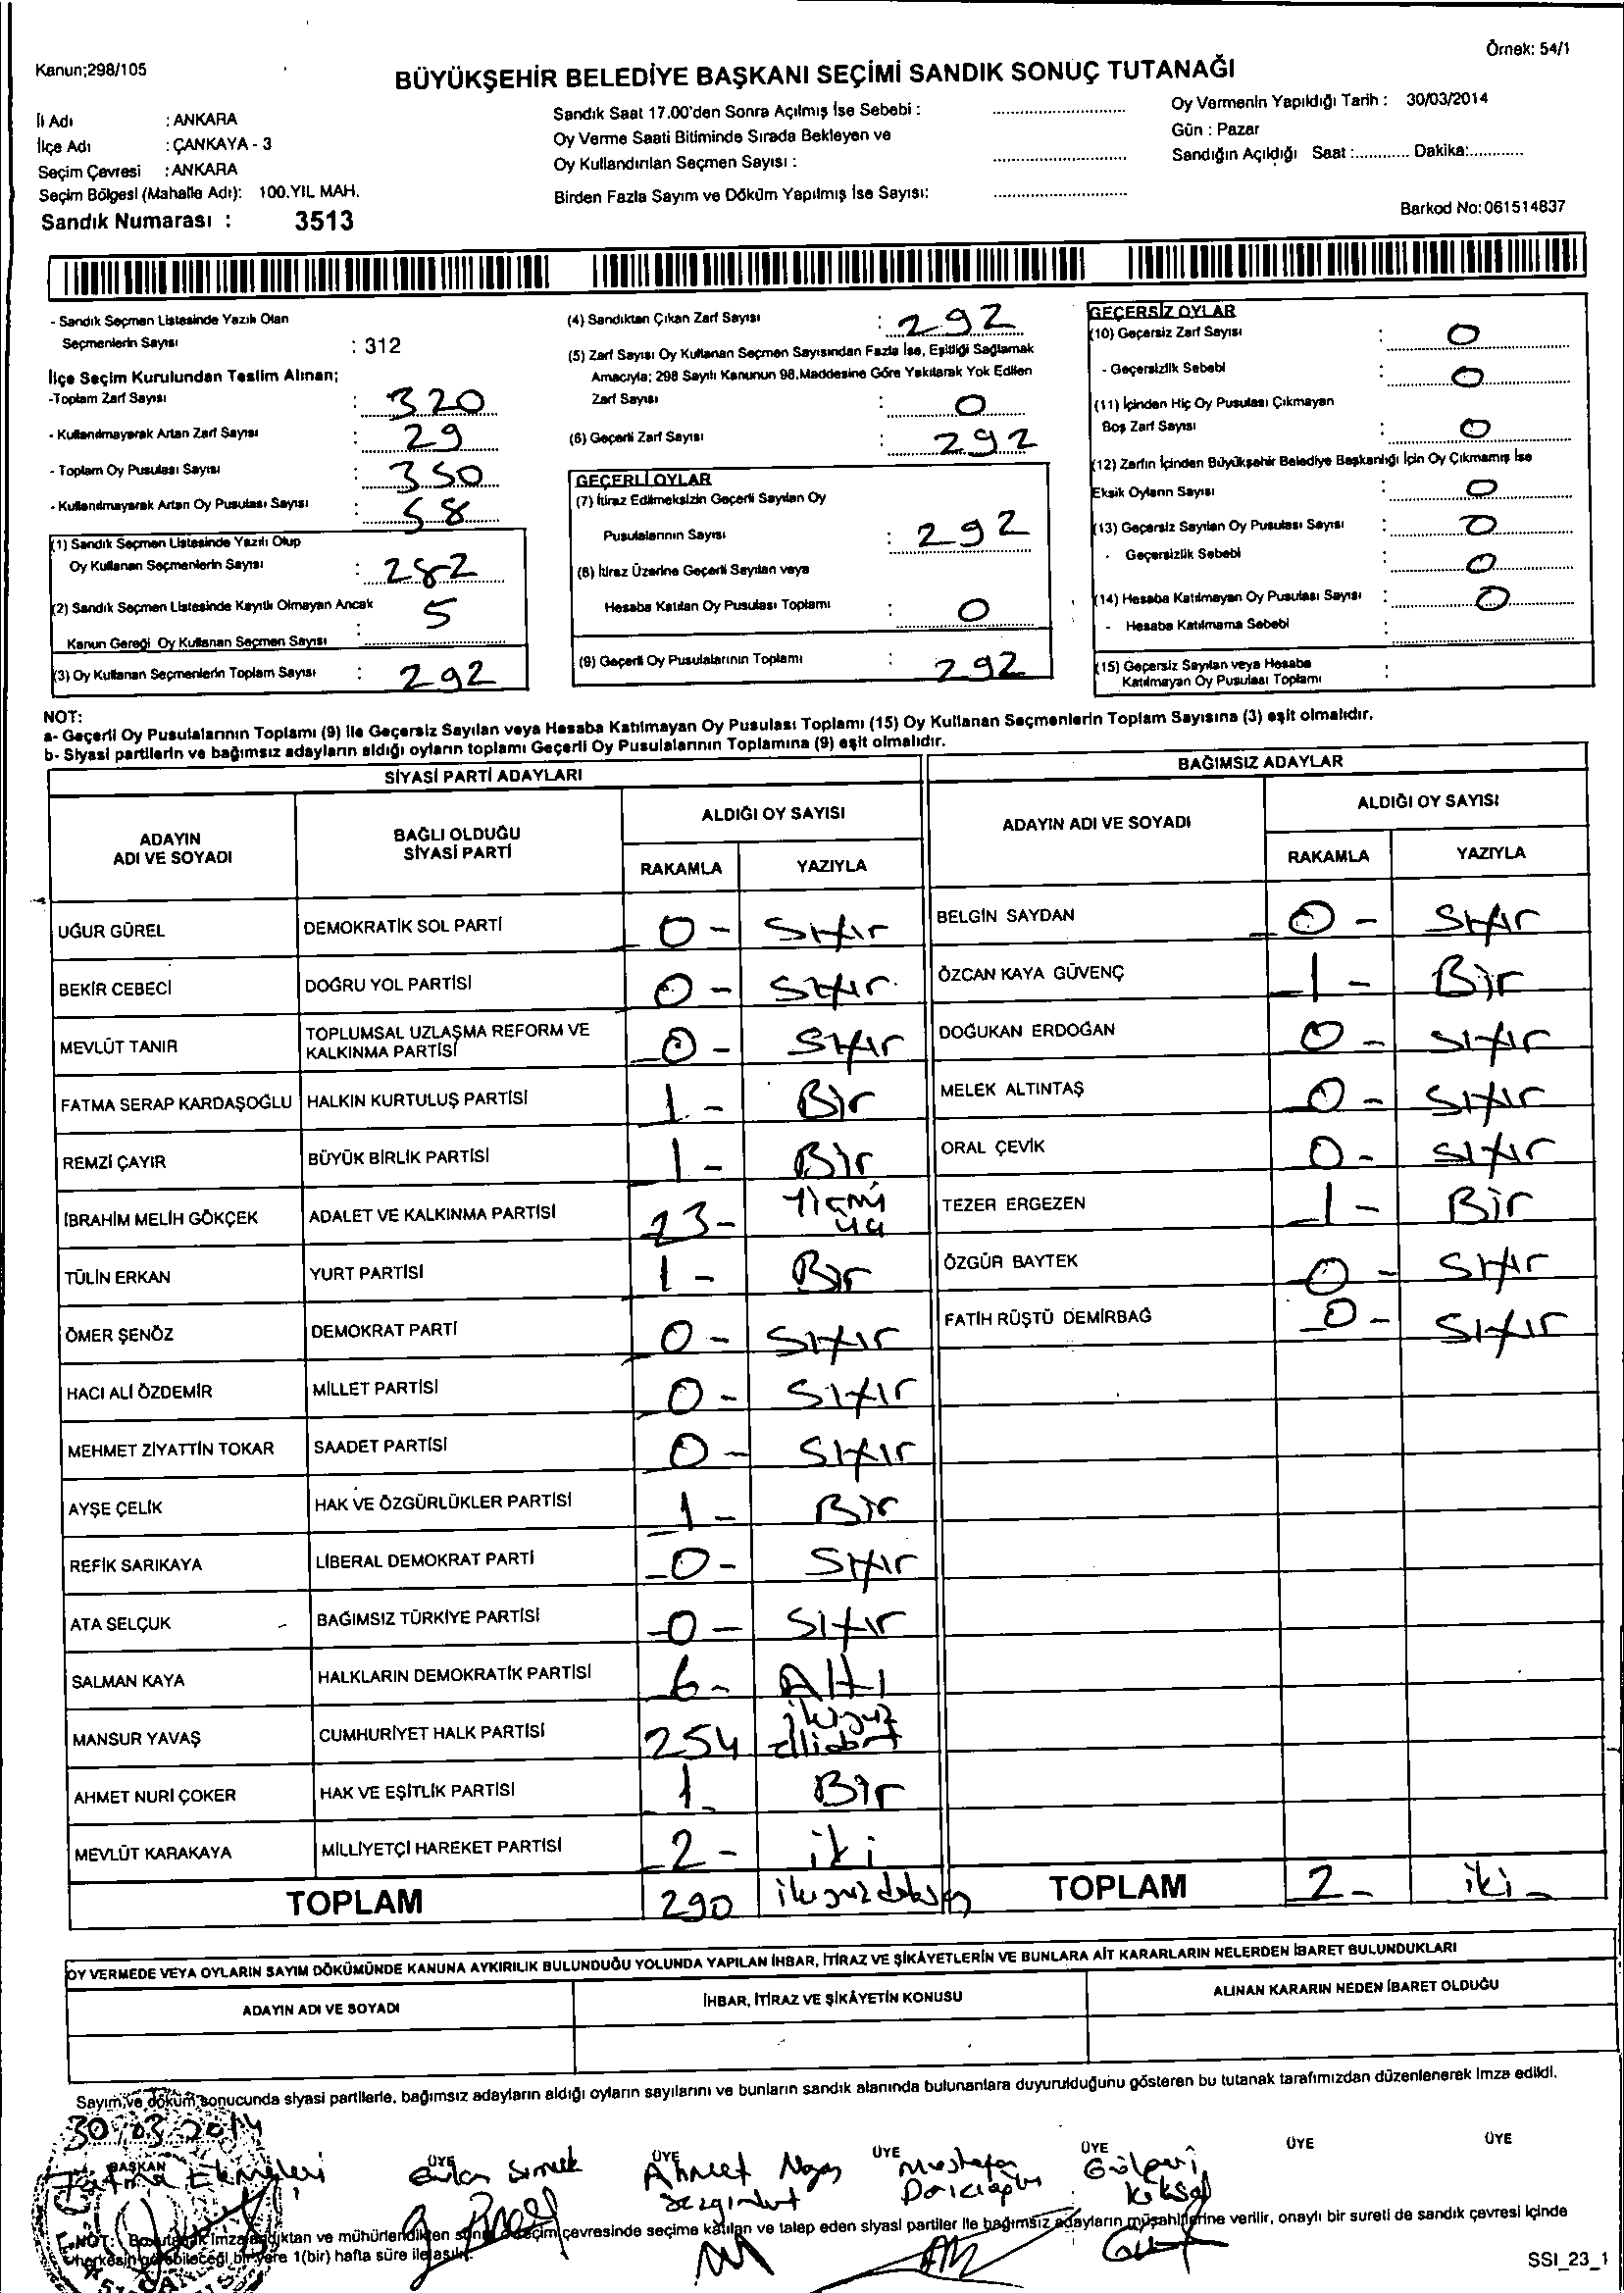 Örnek: 54/1
Kanun;298/105
BÜYÜKŞEHİR BELEDİYE BAŞKANI SEÇİMİ SANDIK SONUÇ TUTANAĞI
İl Adı : ANKARA
İlçe Adı : ÇANKAYA - 3
Seçim Çevresi : ANKARA
Seçim Bölgesi (Mahalle Adı): 100.YIL MAH.
Sandık Numarası : 3513
Sandık Saat 17.00'den Sonra Açılmış İse Sebebi :
Oy Verme Saati Bitiminde Sırada Bekleyen ve
Oy Kullandırılan Seçmen Sayısı :
Birden Fazla Sayım ve Döküm Yapılmış İse Sayısı:
Oy Vermenin Yapıldığı Tarih : 30/03/2014
Gün : Pazar
Sandığın Açıldığı Saat :............ Dakika:............
Barkod No: 061514837
- Sandık Seçmen Listesinde Yazılı Olan
Seçmenlerin Sayısı : 312
İlçe Seçim Kurulundan Teslim Alınan;
-Toplam Zarf Sayısı : 320
- Kullanılmayarak Artan Zarf Sayısı : 29
- Toplam Oy Pusulası Sayısı : 350
- Kullanılmayarak Artan Oy Pusulası Sayısı : 58
(1) Sandık Seçmen Listesinde Yazılı Olup
Oy Kullanan Seçmenlerin Sayısı : 282
(2) Sandık Seçmen Listesinde Kayıtlı Olmayan Ancak
Kanun Gereği Oy Kullanan Seçmen Sayısı : 5
(3) Oy Kullanan Seçmenlerin Toplam Sayısı : 292
(4) Sandıktan Çıkan Zarf Sayısı : 292
(5) Zarf Sayısı Oy Kullanan Seçmen Sayısından Fazla İse, Eşitliği Sağlamak
Amacıyla; 298 Sayılı Kanunun 98.Maddesine Göre Yakılarak Yok Edilen
Zarf Sayısı : 0
(6) Geçerli Zarf Sayısı : 292
GEÇERLİ OYLAR
(7) İtiraz Edilmeksizin Geçerli Sayılan Oy
Pusulalarının Sayısı : 292
(8) İtiraz Üzerine Geçerli Sayılan veya
Hesaba Katılan Oy Pusulası Toplamı : 0
(9) Geçerli Oy Pusulalarının Toplamı : 292
GEÇERSİZ OYLAR
(10) Geçersiz Zarf Sayısı : 0
- Geçersizlik Sebebi : 0
(11) İçinden Hiç Oy Pusulası Çıkmayan
Boş Zarf Sayısı : 0
(12) Zarfın İçinden Büyükşehir Belediye Başkanlığı İçin Oy Çıkmamış İse
Eksik Oyların Sayısı : 0
(13) Geçersiz Sayılan Oy Pusulası Sayısı : 0
- Geçersizlik Sebebi : 0
(14) Hesaba Katılmayan Oy Pusulası Sayısı : 0
- Hesaba Katılmama Sebebi :
(15) Geçersiz Sayılan veya Hesaba
Katılmayan Oy Pusulası Toplamı :
NOT:
a- Geçerli Oy Pusulalarının Toplamı (9) ile Geçersiz Sayılan veya Hesaba Katılmayan Oy Pusulası Toplamı (15) Oy Kullanan Seçmenlerin Toplam Sayısına (3) eşit olmalıdır.
b- Siyasi partilerin ve bağımsız adayların aldığı oyların toplamı Geçerli Oy Pusulalarının Toplamına (9) eşit olmalıdır.
SİYASİ PARTİ ADAYLARI
ADAYIN ADI VE SOYADI BAĞLI OLDUĞU SİYASİ PARTİ ALDIĞI OY SAYISI
RAKAMLA YAZIYLA
UĞUR GÜREL DEMOKRATİK SOL PARTİ 0 - Sıfır
BEKİR CEBECİ DOĞRU YOL PARTİSİ 0 - Sıfır
MEVLÜT TANIR TOPLUMSAL UZLAŞMA REFORM VE KALKINMA PARTİSİ 0 - Sıfır
FATMA SERAP KARDAŞOĞLU HALKIN KURTULUŞ PARTİSİ 1 - Bir
REMZİ ÇAYIR BÜYÜK BİRLİK PARTİSİ 1 - Bir
İBRAHİM MELİH GÖKÇEK ADALET VE KALKINMA PARTİSİ 23 - Yirmi üç
TÜLİN ERKAN YURT PARTİSİ 1 - Bir
ÖMER ŞENÖZ DEMOKRAT PARTİ 0 - Sıfır
HACI ALİ ÖZDEMİR MİLLET PARTİSİ 0 - Sıfır
MEHMET ZİYATTİN TOKAR SAADET PARTİSİ 0 - Sıfır
AYŞE ÇELİK HAK VE ÖZGÜRLÜKLER PARTİSİ 1 - Bir
REFİK SARIKAYA LİBERAL DEMOKRAT PARTİ 0 - Sıfır
ATA SELÇUK BAĞIMSIZ TÜRKİYE PARTİSİ 0 - Sıfır
SALMAN KAYA HALKLARIN DEMOKRATİK PARTİSİ 6 - Altı
MANSUR YAVAŞ CUMHURİYET HALK PARTİSİ 254 ikiyüz ellidört
AHMET NURİ ÇOKER HAK VE EŞİTLİK PARTİSİ 1 - Bir
MEVLÜT KARAKAYA MİLLİYETÇİ HAREKET PARTİSİ 2 - iki
TOPLAM 290 ikiyüzdoksan
BAĞIMSIZ ADAYLAR
ADAYIN ADI VE SOYADI ALDIĞI OY SAYISI
RAKAMLA YAZIYLA
BELGİN SAYDAN 0 - Sıfır
ÖZCAN KAYA GÜVENÇ 1 - Bir
DOĞUKAN ERDOĞAN 0 - Sıfır
MELEK ALTINTAŞ 0 - Sıfır
ORAL ÇEVİK 0 - Sıfır
TEZER ERGEZEN 1 - Bir
ÖZGÜR BAYTEK 0 - Sıfır
FATİH RÜŞTÜ DEMİRBAĞ 0 - Sıfır
TOPLAM 2 - iki -
OY VERMEDE VEYA OYLARIN SAYIM DÖKÜMÜNDE KANUNA AYKIRILIK BULUNDUĞU YOLUNDA YAPILAN İHBAR, İTİRAZ VE ŞİKÂYETLERİN VE BUNLARA AİT KARARLARIN NELERDEN İBARET BULUNDUKLARI
ADAYIN ADI VE SOYADI İHBAR, İTİRAZ VE ŞİKÂYETİN KONUSU ALINAN KARARIN NEDEN İBARET OLDUĞU
Sayım ve döküm sonucunda siyasi partilerle, bağımsız adayların aldığı oyların sayılarını ve bunların sandık alanında bulunanlara duyurulduğunu gösteren bu tutanak tarafımızdan düzenlenerek imza edildi.
30/03/2014
BAŞKAN ÜYE ÜYE ÜYE ÜYE ÜYE ÜYE
Fatma Ahmet Mustafa Gülperi
Köksal
NOT: Bu tutanak imzalandıktan ve mühürlendikten sonra seçim çevresinde seçime katılan ve talep eden siyasi partiler ile bağımsız adayların müşahitlerine verilir, onaylı bir sureti de sandık çevresi içinde
herkesin görebileceği bir yere 1(bir) hafta süre ile asılır.
SSI_23_1